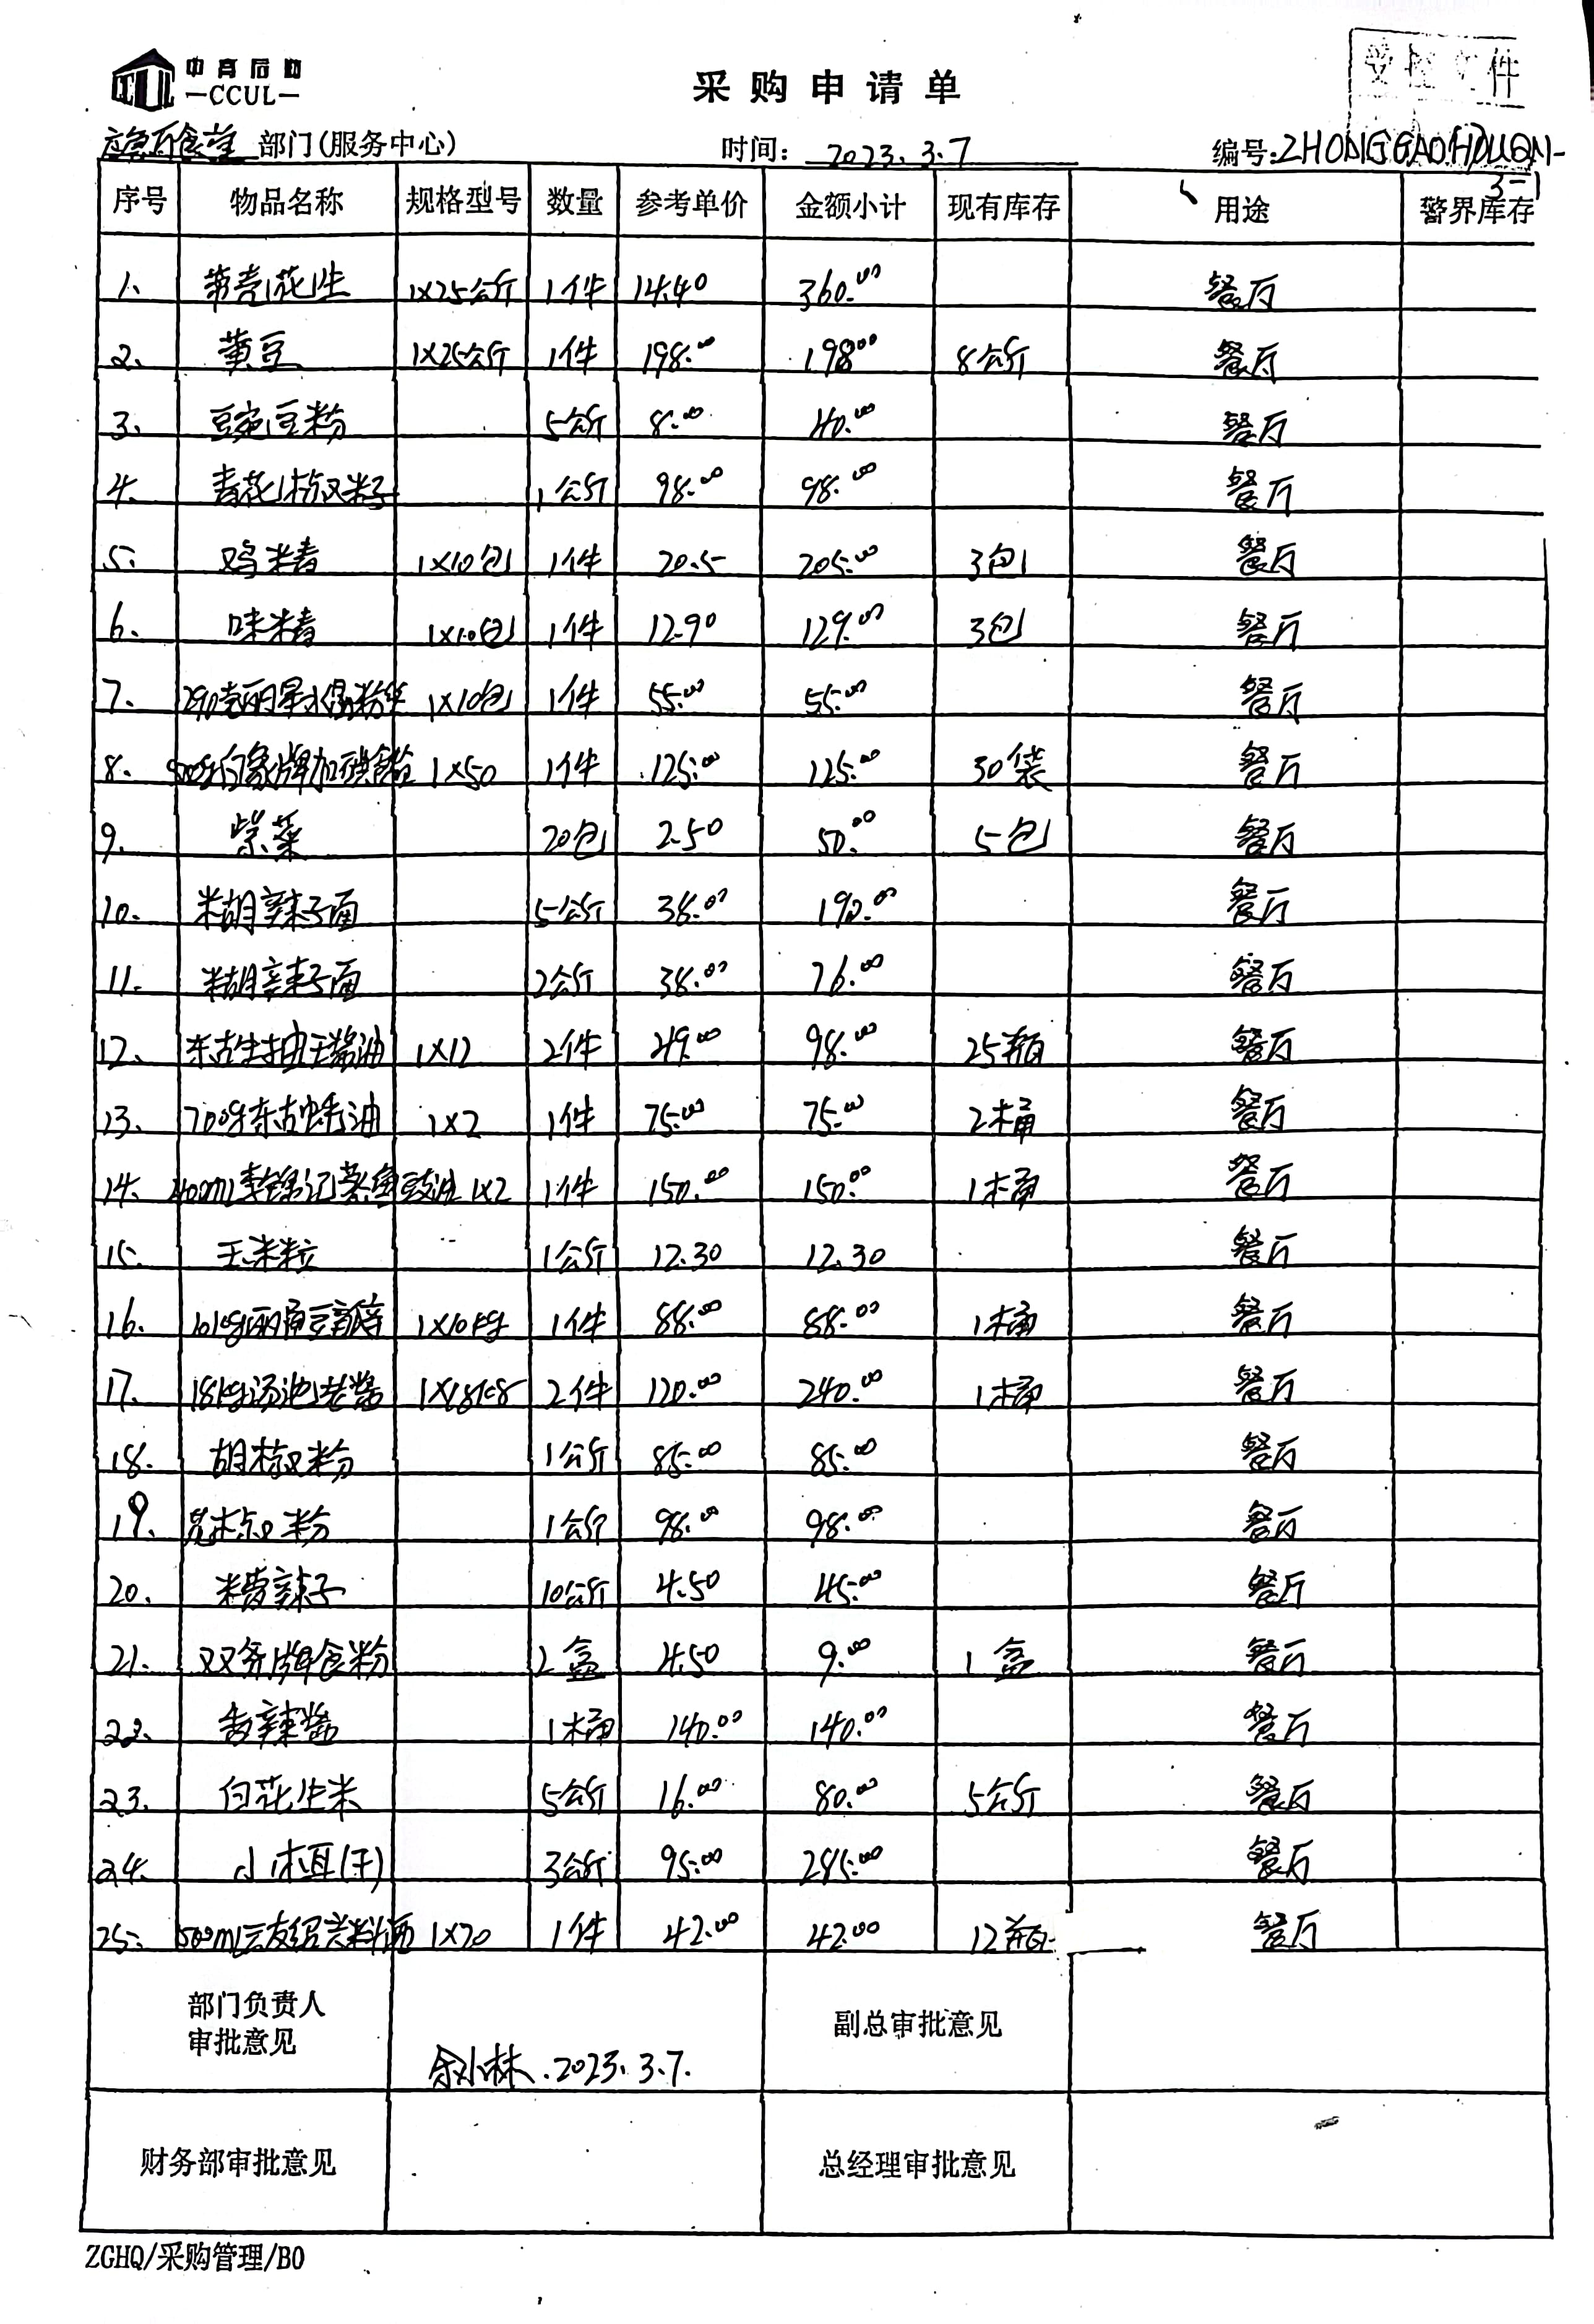 中育后勤
—CCUL—
采购申请单
受控文件
应急厅食堂 部门(服务中心) 时间: 2023.3.7 编号:ZHONGGAOHOUQIN-3-1
序号 物品名称 规格型号 数量 参考单价 金额小计 现有库存 用途 警界库存
1. 带壳花生 1×25公斤 1件 14.40 360.00 餐厅
2. 黄豆 1×25公斤 1件 198.00 198.00 8公斤 餐厅
3. 豆豌豆粉 5公斤 8.00 40.00 餐厅
4. 青花椒籽 1公斤 98.00 98.00 餐厅
5. 鸡精 1×10包 1件 20.5 205.00 3包 餐厅
6. 味精 1×10包 1件 12.90 129.00 3包 餐厅
7. 290克丽星水晶粉丝 1×10包 1件 55.00 55.00 餐厅
8. 500g白象牌加碘食盐 1×50 1件 125.00 125.00 30袋 餐厅
9. 紫菜 20包 2.50 50.00 5包 餐厅
10. 糊辣子面 5公斤 38.00 190.00 餐厅
11. 糊辣子面 2公斤 38.00 76.00 餐厅
12. 东古生抽王酱油 1×12 2件 49.00 98.00 25瓶 餐厅
13. 700g东古蚝油 1×2 1件 75.00 75.00 2桶 餐厅
14. 李锦记蒸鱼豉油 1×2 1件 150.00 150.00 1桶 餐厅
15. 玉米粒 1公斤 12.30 12.30 餐厅
16. 10kg丽雨豆瓣酱 1×10kg 1件 88.00 88.00 1桶 餐厅
17. 18kg汤池老酱 1×18kg 2件 120.00 240.00 1桶 餐厅
18. 胡椒粉 1公斤 85.00 85.00 餐厅
19. 花椒粉 1公斤 98.00 98.00 餐厅
20. 糟辣子 10公斤 4.50 45.00 餐厅
21. 双务牌食粉 2盒 4.50 9.00 1盒 餐厅
22. 香辣酱 1桶 140.00 140.00 餐厅
23. 白花生米 5公斤 16.00 80.00 5公斤 餐厅
24. 小木耳(干) 3公斤 95.00 285.00 餐厅
25. 500mL三友绍兴料酒 1×20 1件 42.00 42.00 12瓶 餐厅
部门负责人
审批意见
余小林.2023.3.7.
副总审批意见
财务部审批意见
总经理审批意见
ZGHQ/采购管理/B0